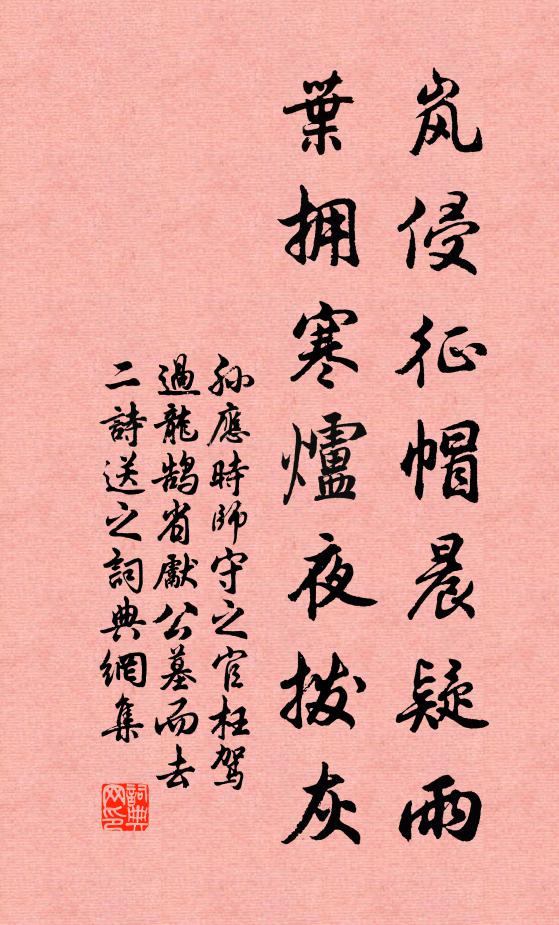 岚侵征帽晨疑雨
葉拥寒爐夜拨灰
孙應時師守之官枉駕
過龍鹄省獻公墓而去
二詩送之詞典網集
詞典
网印